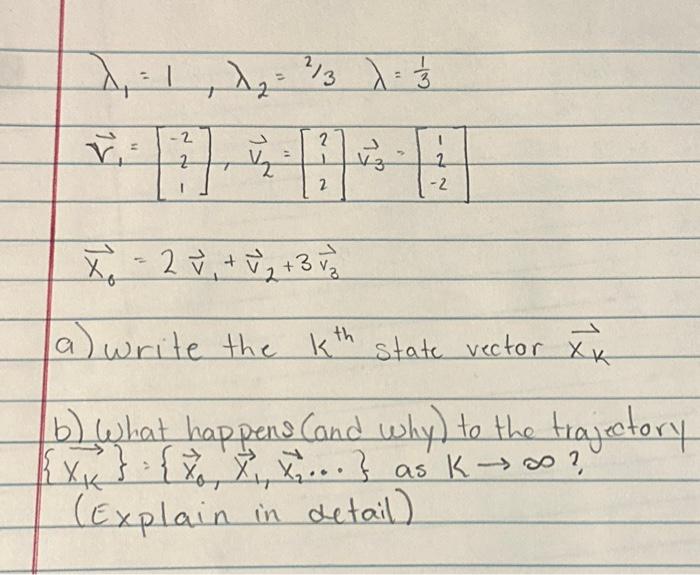 λ₁ = 1 , λ₂ = 2/3 λ = 1/3
v⃗₁ = [-2 2 1] , v⃗₂ = [2 1 2] v⃗₃ = [1 2 -2]
x⃗₀ = 2 v⃗₁ + v⃗₂ + 3 v⃗₃
a) write the kᵗʰ state vector x⃗ₖ
b) What happens (and why) to the trajectory
{x⃗ₖ} = {x⃗₀, x⃗₁, x⃗₂...} as K → ∞ ?
(Explain in detail)